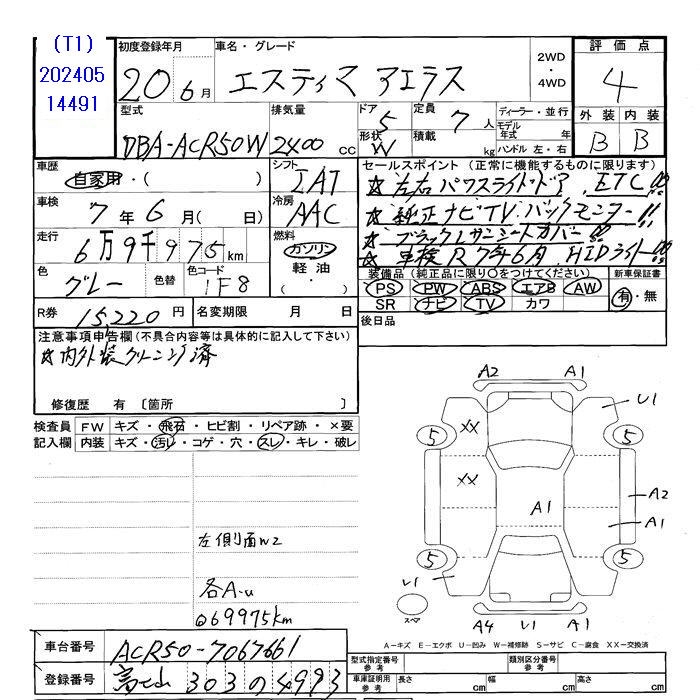 (T1)
202405
14491
初度登録年月
20 6月
車名・グレード
エスティマ アエラス
2WD
・
4WD
評価点
4
外装 内装
B B
型式
DBA-ACR50W
排気量
2400 cc
ドア
5
形状
W
定員
7 人
積載 kg
ディーラー・並行
モデル年式 年
ハンドル 左・右
車歴
自家用・( )
シフト
IAT
車検
7年 6月( 日)
冷房
AAC
走行
6万9千975km
燃料
ガソリン
軽油・
色
グレー
色替
色コード
1F8
R券
15,220円
名変期限 月 日
セールスポイント(正常に機能するものに限ります)
☆左右パワスライドドア, ETC!!
☆純正ナビ・TV・バックモニター!!
☆ブラックレザーシートカバー!!
☆車検R7年6月, HIDライト!!
装備品(純正品に限り○をつけてください)
PS PW ABS エアB AW
SR ナビ TV カワ
新車保証書
有・無
後日品
注意事項申告欄(不具合内容等は具体的に記入して下さい)
☆内外装クリーニング済
修復歴 有〔箇所 〕
検査員記入欄
FW キズ・飛石・ヒビ割・リペア跡・×要
内装 キズ・汚レ・コゲ・穴・スレ・キレ・破レ
左側面W2
各A-U
069975km
A2 A1
U1
5 XX 5
XX
A2
A1 A1
5 5
U1
スペア
A4 U1 A1
A-キズ E-エクボ U-凹み W-補修跡 S-サビ C-腐食 XX-交換済
車台番号
ACR50-7067661
登録番号
303 の 4993
型式指定番号
参考
類別区分番号
参考
車庫証明用
参考
長さ cm
幅 cm
高さ cm